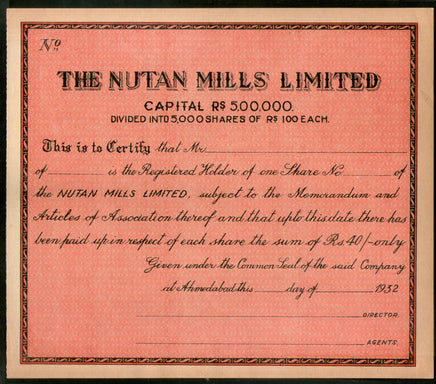 No
THE NUTAN MILLS LIMITED
CAPITAL RS 5,00,000.
DIVIDED INTO 5,000 SHARES OF RS 100 EACH.
This is to Certify that Mr.
of is the Registered Holder of one Share No of
the NUTAN MILLS LIMITED, subject to the Memorandum and
Articles of Association thereof and that upto this date there has
been paid up in respect of each share the sum of Rs 40/- only
Given under the Common Seal of the said Company
at Ahmedabad this day of 1932
DIRECTOR.
AGENTS.